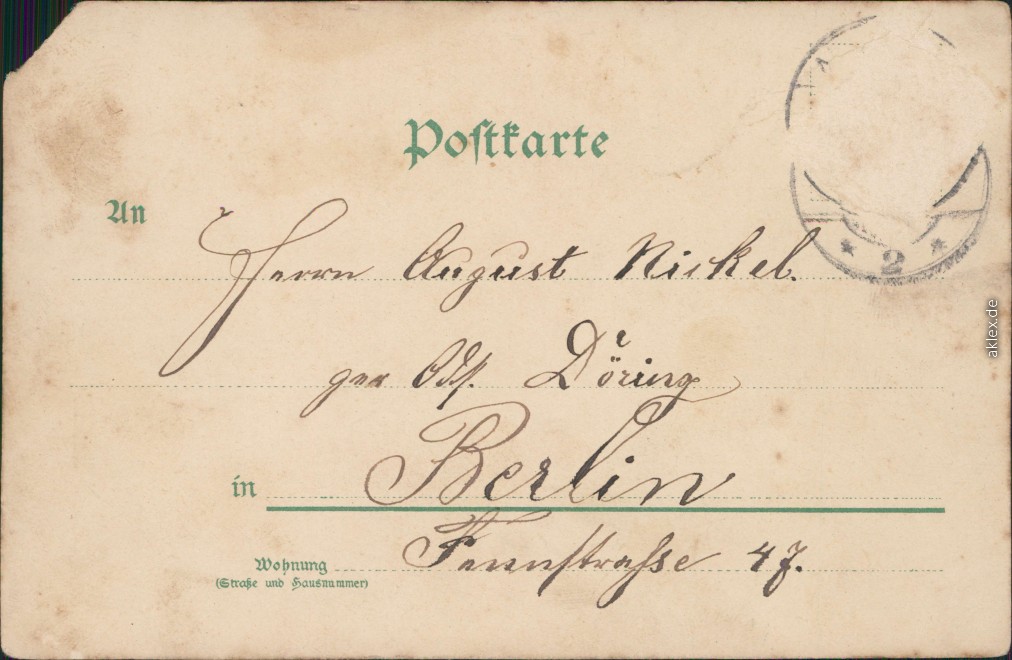 Postkarte
An
Herrn August Nickel.
Döring
in Berlin
Wohnung
(Straße und Hausnummer)
Fennstrasse 47.
2
aklex.de